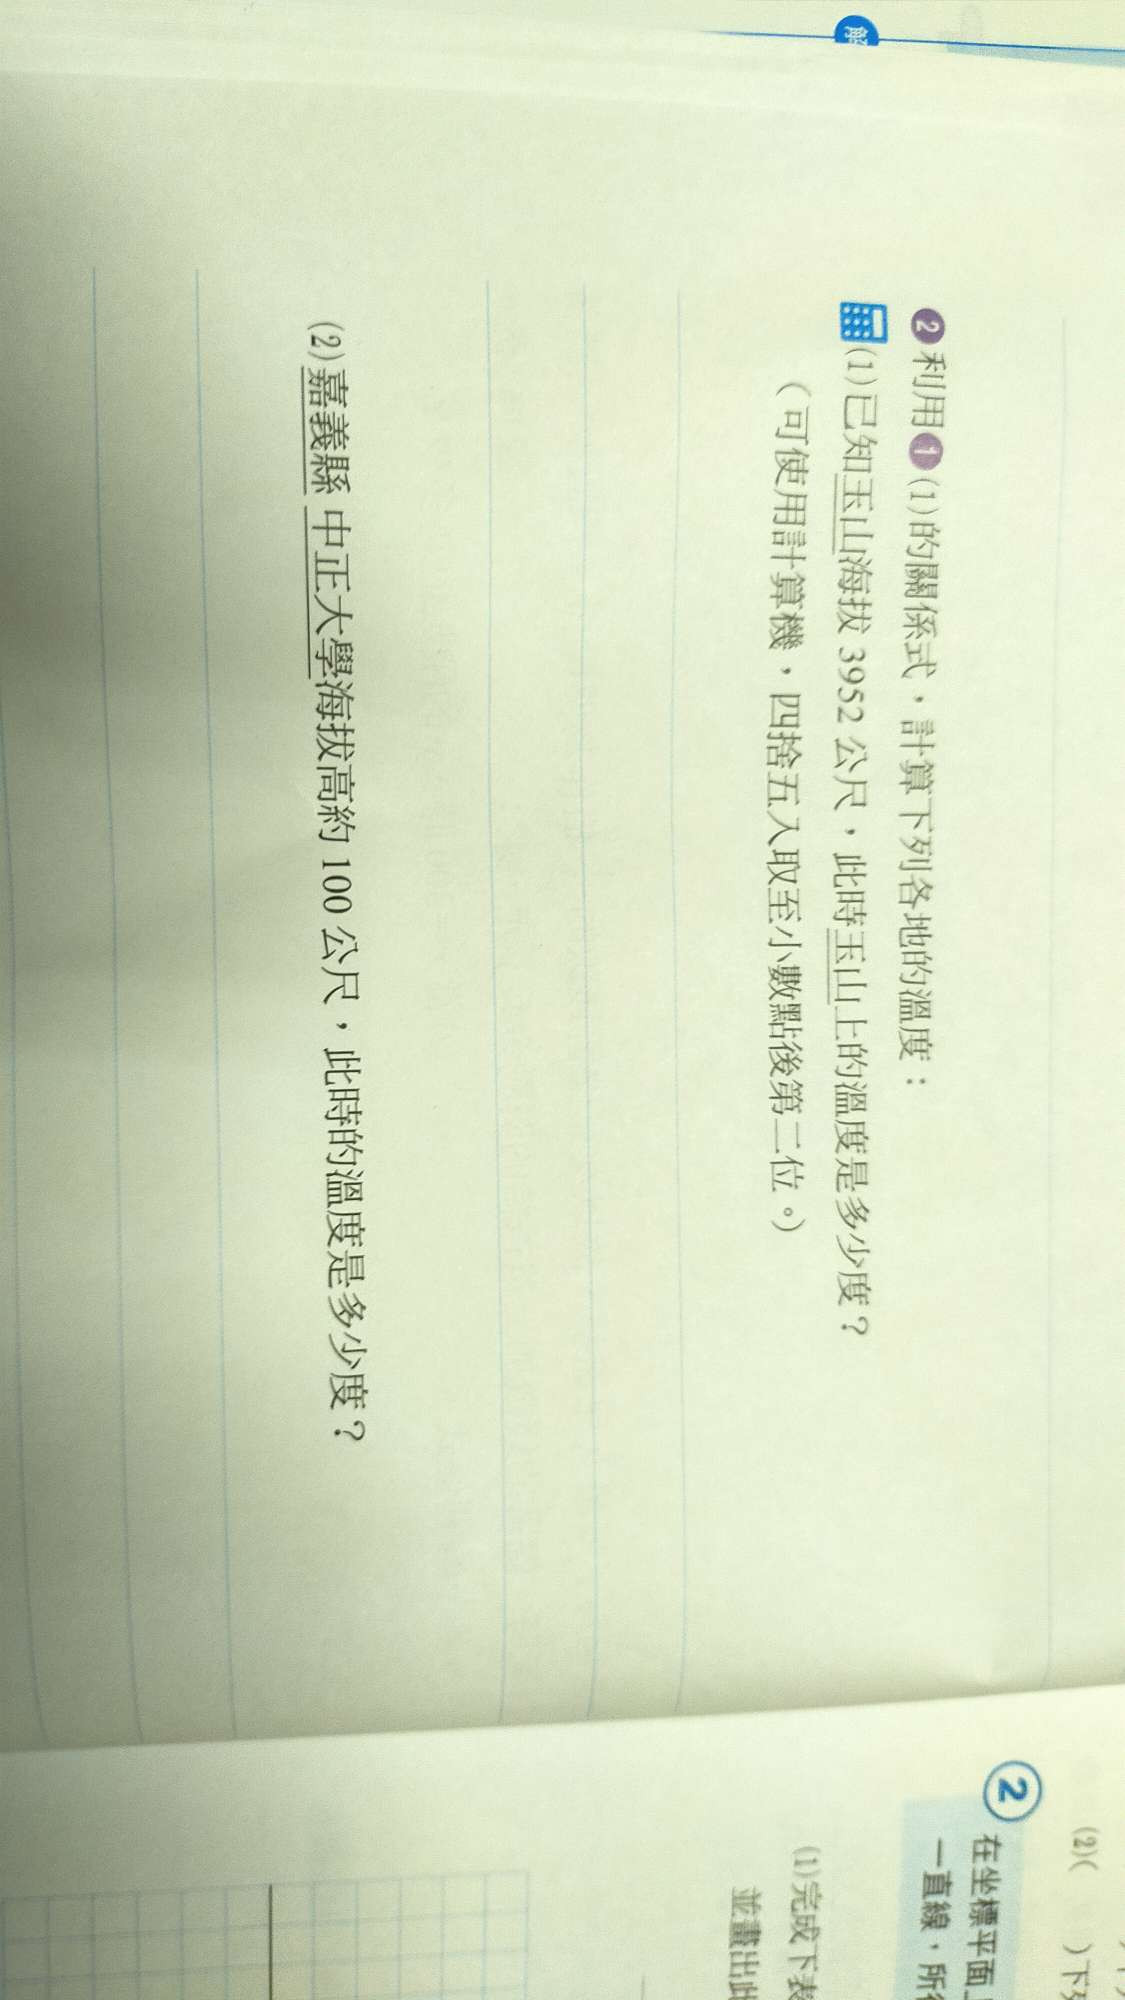 解
❷利用❶(1)的關係式，計算下列各地的溫度：
(1)已知玉山海拔 3952 公尺，此時玉山上的溫度是多少度？
（可使用計算機，四捨五入取至小數點後第二位。）
(2)嘉義縣 中正大學海拔高約 100 公尺，此時的溫度是多少度？
(2)(　　)下列
② 在坐標平面上
一直線，所
(1)完成下表
並畫出此